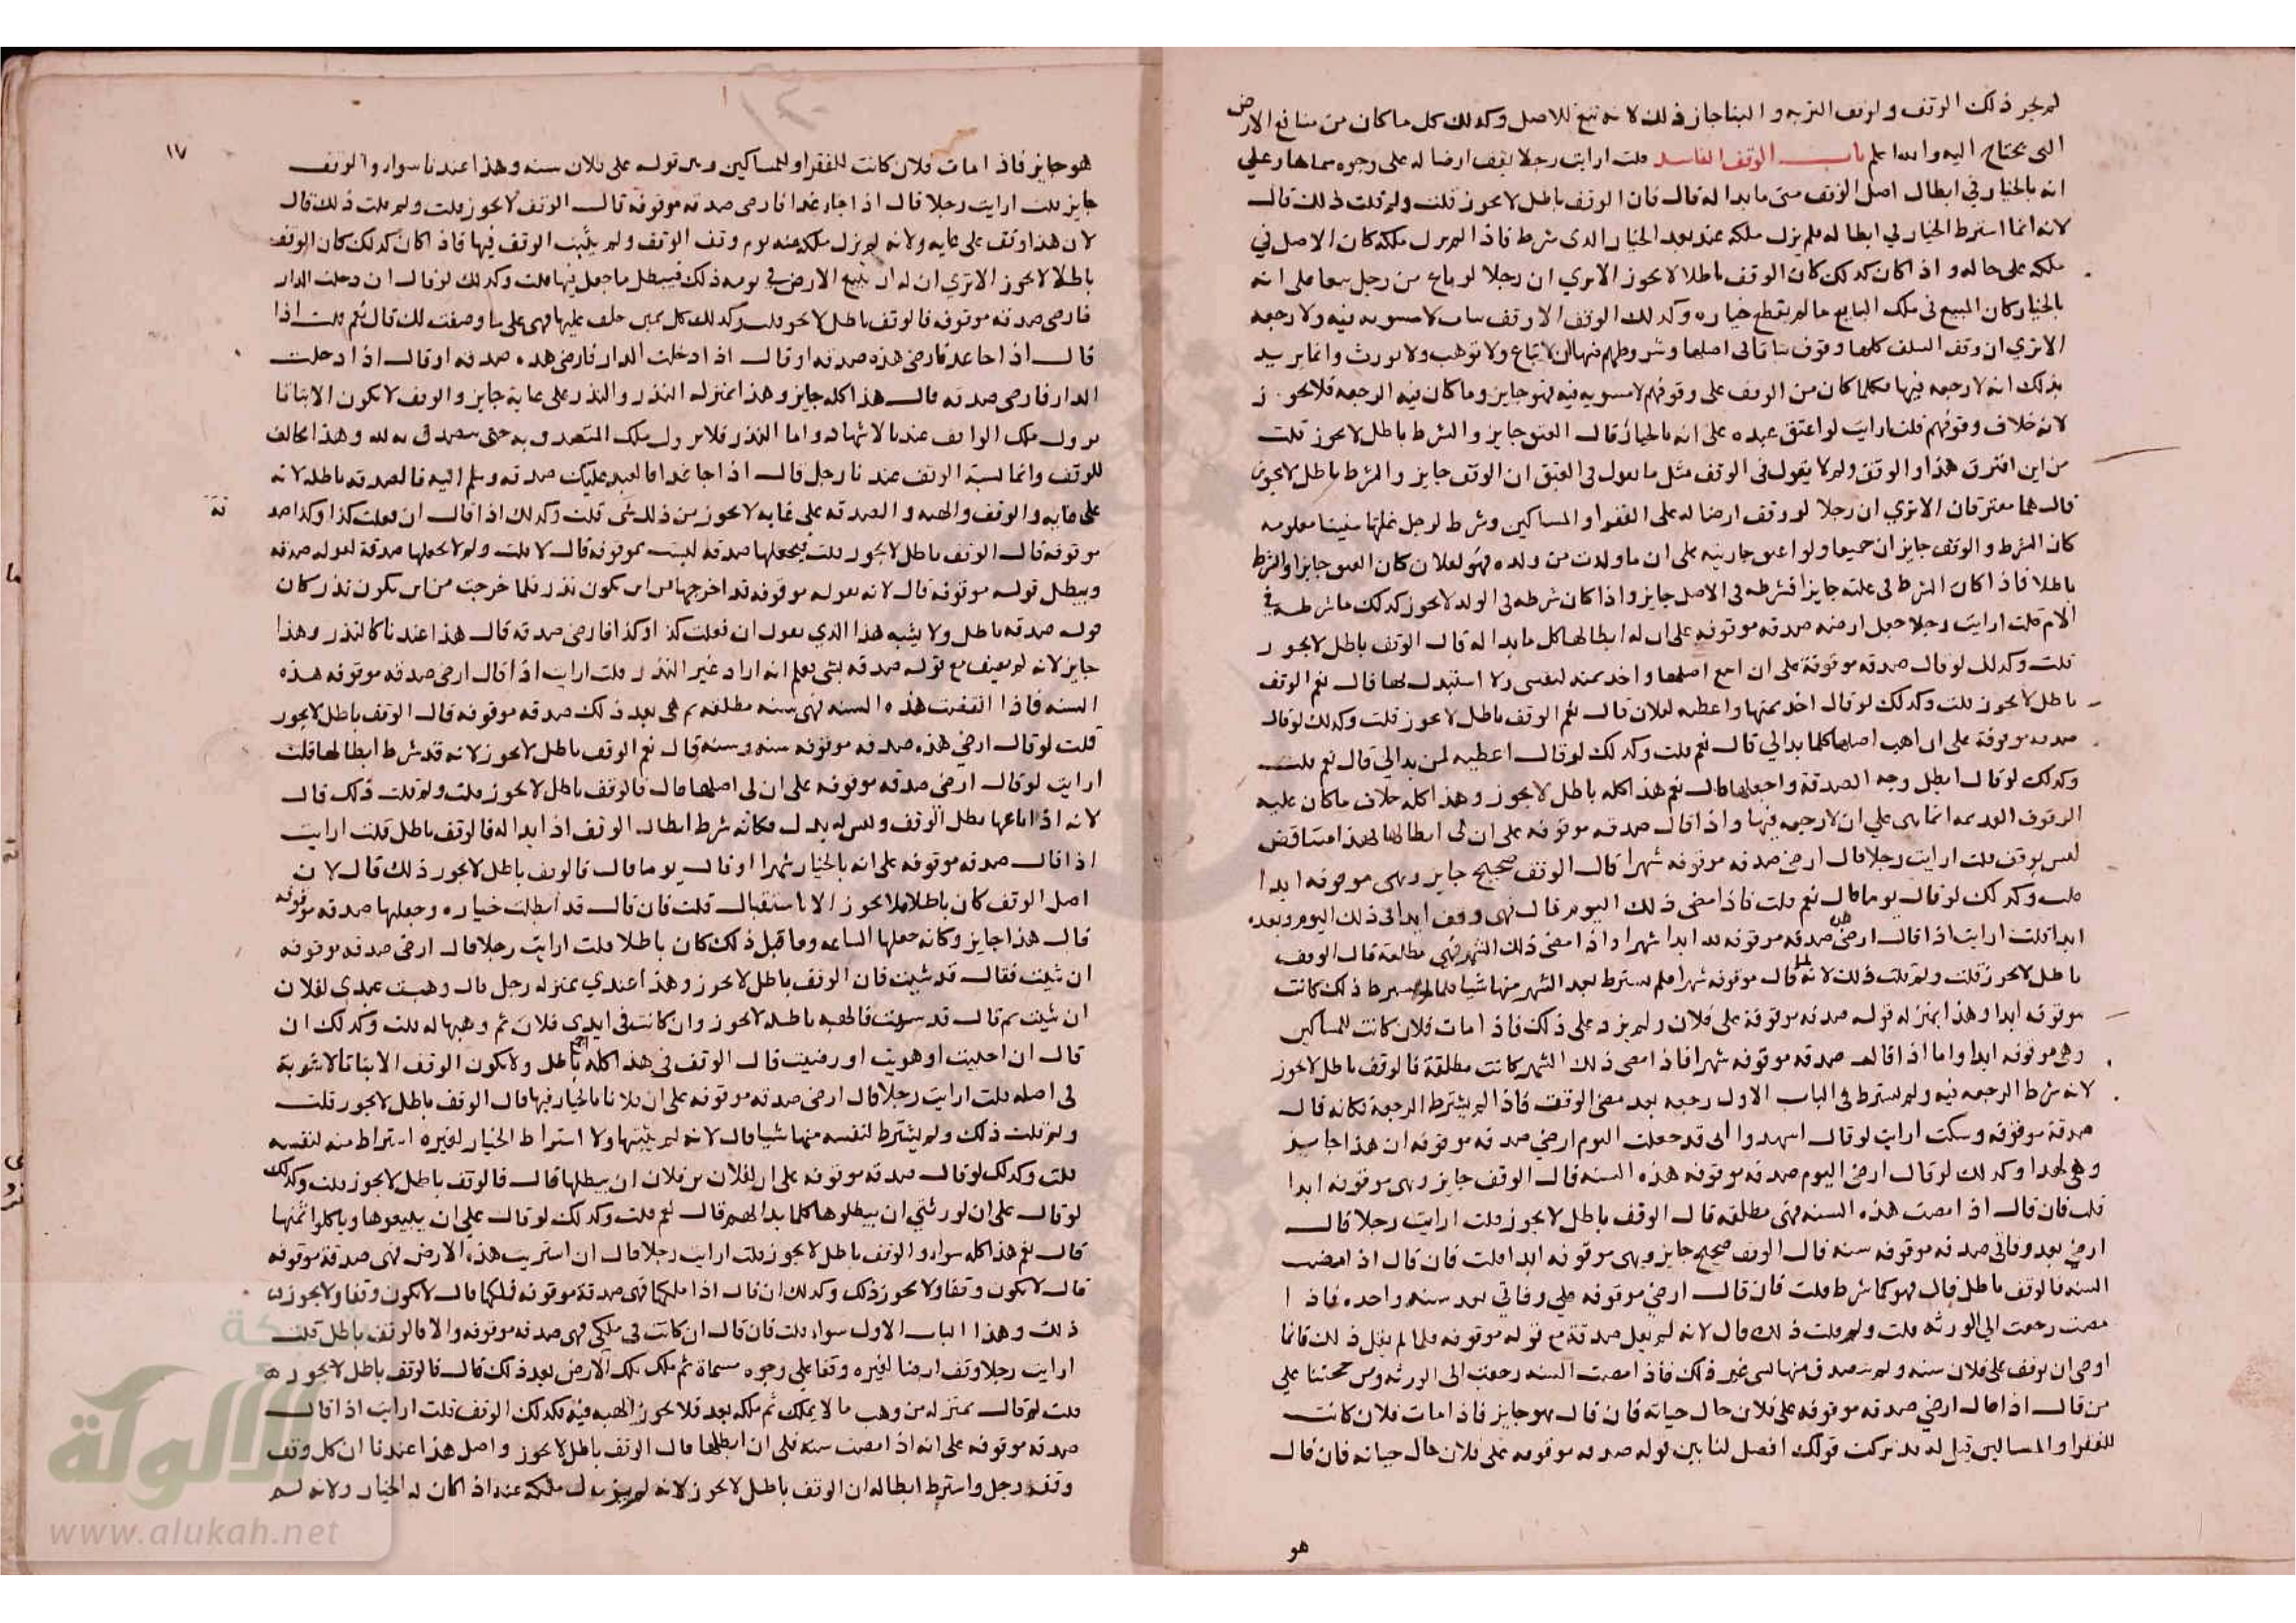 لم يجز ذلك الوقف ولو وقف التربه والبنا جاز ذلك لانه تبع للاصل وكذلك كل ما كان من منافع الارض
التى يحتاج اليه والله اعلم باب الوقف الفاسد قلت ارايت رجلا يقف ارضا له على وجوه سماها على
انه بالخيار فى ابطال اصل الوقف متى ما بدا له قال فان الوقف باطل لا يجوز قلت ولم قلت ذلك قال
لانه انما اشترط الخيار فى ابطاله فلم يزل ملكه عنه بعد الخيار الذى شرط فاذا لم يزل ملكه كان الاصل فى
ملكه على حاله واذا كان كذلك كان الوقف باطلا لا يجوز الا ترى ان رجلا لو باع من رجل بيعا على انه
بالخيار كان المبيع فى ملك البايع ما لم يقطع خياره وكذلك الوقف الا وقف بتات لا مثنويه فيه ولا رجعه
الا ترى ان وقف السلف كلها وقوف بتاتا فى اصلها وشروطهم فيها ان لا تباع ولا توهب ولا تورث وانما يريد
بذلك انه لا رجعه فيها فكلما كان من الوقف على وقوفهم لا مثنويه فيه فهو جايز وما كان فيه الرجعه فلا يجوز
لانه خلاف وقوفهم قلت ارايت لو اعتق عبده على انه بالخيار قال العتق جايز والشرط باطل لا يجوز قلت
من اين افترق هذا والوقف ولم لا يقول فى الوقف مثل ما تقول فى العتق ان الوقف جايز والشرط باطل لا يجوز
قال هما مفترقان الا ترى ان رجلا لو وقف ارضا له على الفقرا والمساكين وشرط لرجل غلتها سنينا معلومه
كان الشرط والوقف جايزان جميعا ولو اعتق جاريته على ان ما ولدت من ولده فهو لفلان كان العتق جايزا والشرط
باطلا فاذا كان الشرط فى غلته جايزا فشرطه فى الاصل جايز واذا كان شرطه فى الولد لا يجوز كذلك ما شرطه فى
الام قلت ارايت رجلا جعل ارضه صدقه موقوفه على ان له ابطالها كل ما بدا له قال الوقف باطل لا يجوز
قلت وكذلك لو قال صدقه موقوفة على ان ابيع اصلها واخذ ثمنه لنفسى ولا استبدل لها قال نعم الوقف
باطل لا يجوز قلت وكذلك لو قال اخذ ثمنها واعطيه لفلان قال نعم الوقف باطل لا يجوز قلت وكذلك لو قال
صدقه موقوفة على ان اهب اصلها كلما بدا لى قال نعم قلت وكذلك لو قال اعطيه لمن بدا لى قال نعم قلت
وكذلك لو قال ابطل وجه الصدقة واجعلها قال نعم هذا كله باطل لا يجوز وهذا كله خلاف ما كان عليه
الوقوف القديمه انما هى على ان لا رجعه فيها واذا قال صدقه موقوفه على ان لى ابطالها فهذا متناقض
ليس بوقف قلت ارايت رجلا قال ارضى صدقه موقوفه شهرا قال الوقف صحيح جايز وهى موقوفه ابدا
قلت وكذلك لو قال يوما قال نعم قلت فاذا مضى ذلك اليوم قال فهى وقف ابدا فى ذلك اليوم وبعده
ابدا قلت ارايت اذا قال ارضى هذه صدقه موقوفه لله ابدا شهرا واذا مضى ذلك الشهر فهى مطلقة قال الوقف
باطل لا يجوز قلت ولم قلت ذلك لانه لما قال موقوفه شهرا فلم يشترط بعد الشهر منها شيا فلما لم يشترط ذلك كانت
موقوفه ابدا وهذا بمنزله قوله صدقه موقوفة على فلان ولم يزد على ذلك فاذا مات فلان كانت للمساكين
وهى موقوفه ابدا واما اذا قال صدقه موقوفه شهرا فاذا مضى ذلك الشهر كانت مطلقة فالوقف باطل لا يجوز
لانه شرط الرجعه فيه ولم يشترط فى الباب الاول رجعه بعد مضى الوقت فاذا لم يشترط الرجعة فكانه قال
صدقة موقوفه وسكت ارايت لو قال اشهدوا انى قد جعلت اليوم ارضى صدقه موقوفه ان هذا جايز
وهى لهذا وكذلك لو قال ارضى اليوم صدقه موقوفه هذه السنه قال الوقف جايز وهى موقوفه ابدا
قلت فان قال اذا مضت هذه السنه فهى مطلقه قال الوقف باطل لا يجوز قلت ارايت رجلا قال
ارضى بعد وفاتى صدقه موقوفه سنه قال الوقف صحيح جايز وهى موقوفه ابدا قلت فان قال اذا مضت
السنه فالوقف باطل قال فهو كما شرط قلت فان قال ارضى موقوفه على وفاتى بعد سنه واحده فاذا
مضت رجعت الى الورثه قلت ولم قلت ذلك قال لانه لم يقل صدقة مع قوله موقوفه فلما لم يقل ذلك فانما
اوصى ان توقف على فلان سنه ولم يتصدق منها بشى غير ذلك فاذا مضت السنه رجعت الى الورثه ومن حجتنا على
من قال اذا قال ارضى صدقه موقوفه على فلان حال حياته فان قال هو جايز فاذا مات فلان كانت
للفقرا والمساكين قيل له قد تركت قولك افصل لنا بين قوله صدقه موقوفه على فلان حال حياته فان قال
هو
١٧
هو جايز فاذا مات فلان كانت للفقرا والمساكين وبين قوله على فلان سنه وهذا عندنا سوا والوقف
جايز قلت ارايت رجلا قال اذا جا غد فارضى صدقه موقوفه قال الوقف لا يجوز قلت ولم قلت ذلك قال
لان هذا وقف على غايه ولانه لم يزل ملكه عنه يوم وقف الوقف ولم يثبت الوقف فيها فاذا كان كذلك كان الوقف
باطلا لا يجوز الا ترى ان له ان يبيع الارض فى يومه ذلك فيبطل ما جعل فيها قلت وكذلك لو قال ان دخلت الدار
فارضى صدقه موقوفه فالوقف باطل لا يجوز قلت وكذلك كل يمين حلف عليها فهى على ما وصفت لك قال نعم قلت اذا
قال اذا جا غد فارضى هذه صدقه او قال اذا دخلت الدار فارضى هذه صدقه او قال اذا دخلت
الدار فارضى صدقه قال هذا كله جايز وهذا بمنزله النذر والنذر على غاية جايز والوقف لا يكون الا بتاتا
يزول ملك الواقف عندنا لا شهاده واما النذر فلا يزول ملك المتصدق به حتى يتصدق به لله وهذا مخالف
للوقف وانما يشبه الوقف عندنا رجل قال اذا جا غدا فالعبد عليك صدقه وسلم اليه فالصدقه باطله لانه
على غايه والوقف والهبه والصدقه على غايه لا يجوز من ذلك شى قلت وكذلك اذا قال ان فعلت كذا وكذا صد
قة
موقوفه قال الوقف باطل لا يجوز قلت فيجعلها صدقه ليست بموقوفه قال لا قلت ولم لا يجعلها صدقة لقوله صدقه
ويبطل قوله موقوفه قال لانه بقوله موقوفه قد اخرجها من ان يكون نذر فلما خرجت من ان يكون نذر كان
قوله صدقه باطل ولا يشبه هذا الذى يقول ان فعلت كذا وكذا فارضى صدقه قال هذا عندنا كالنذر وهذا
جايز لانه لم يضف مع قوله صدقه بشى يعلم انه اراد غير النذر قلت ارايت اذا قال ارضى صدقه موقوفه هذه
السنه فاذا انقضت هذه السنه فهى سنه مطلقه ثم هى بعد ذلك صدقه موقوفه قال الوقف باطل لا يجوز
قلت لو قال ارضى هذه صدقه موقوفه سنه وسنه قال نعم الوقف باطل لا يجوز لانه قد شرط ابطالها قلت
ارايت لو قال ارضى صدقه موقوفه على ان لى اصلها قال فالوقف باطل لا يجوز قلت ولم قلت ذلك قال
لانه اذا باعها بطل الوقف وليس له بدل فكانه شرط ابطال الوقف اذا بدا له فالوقف باطل قلت ارايت
اذا قال صدقه موقوفه على انه بالخيار شهرا او قال يوما قال فالوقف باطل لا يجوز ذلك قال لان
اصل الوقف كان باطلا فلا يجوز الا باستقبال قلت فان قال قد ابطلت خياره وجعلها صدقه موقوفه
قال هذا جايز وكانه جعلها الساعه وما قبل ذلك كان باطلا قلت ارايت رجلا قال ارضى صدقه موقوفه
ان شيت فقال قد شيت فان الوقف باطل لا يجوز وهذا عندى بمنزله رجل قال وهبت عبدى لفلان
ان شيت ثم قال قد شيت فالهبه باطله لا يجوز وان كانت فى ايدى فلان ثم وهبها له قلت وكذلك ان
قال ان احببت او هويت او رضيت قال الوقف فى هذا كله باطل ولا يكون الوقف الا بتاتا لا مثنويه
فى اصله قلت ارايت رجلا قال ارضى صدقه موقوفه على ان فلانا بالخيار فيها قال الوقف باطل لا يجوز قلت
ولم قلت ذلك ولم يشترط لنفسه منها شيا قال لانه لم يثبتها ولا اشتراط الخيار لغيره اشتراط منه لنفسه
قلت وكذلك لو قال صدقه موقوفه على ان لفلان بن فلان ان يبطلها قال فالوقف باطل لا يجوز قلت وكذلك
لو قال على ان لورثتى ان يبطلوها كلما بدا لهم قال نعم قلت وكذلك لو قال على ان يبيعوها وياكلوا ثمنها
قال نعم هذا كله سوا والوقف باطل لا يجوز قلت ارايت رجلا قال ان اشتريت هذه الارض فهى صدقة موقوفه
قال لا يكون وقفا ولا يجوز ذلك وكذلك ان قال اذا ملكها فهى صدقة موقوفه فملكها قال لا يكون وقفا ولا يجوز
ذلك وهذا الباب الاول سوا قلت فان قال ان كانت فى ملكى فهى صدقه موقوفه والا فالوقف باطل قلت
ارايت رجلا وقف ارضا لغيره وقفا على وجوه مسماة ثم ملك تلك الارض بعد ذلك قال فالوقف باطل لا يجوز
قلت لم قال بمنزله من وهب ما لا يملك ثم ملكه بعد فلا يجوز الهبه فيه فكذلك الوقف قلت ارايت اذا قال
صدقه موقوفه على انه اذا مضت سنه فلى ان ابطلها قال الوقف باطل لا يجوز واصل هذا عندنا ان كل وقف
وقفه رجل واشترط ابطاله ان الوقف باطل لا يجوز لانه لم يزل ملكه عنه اذا كان له الخيار ولانه لم
الألوكة
www.alukah.net